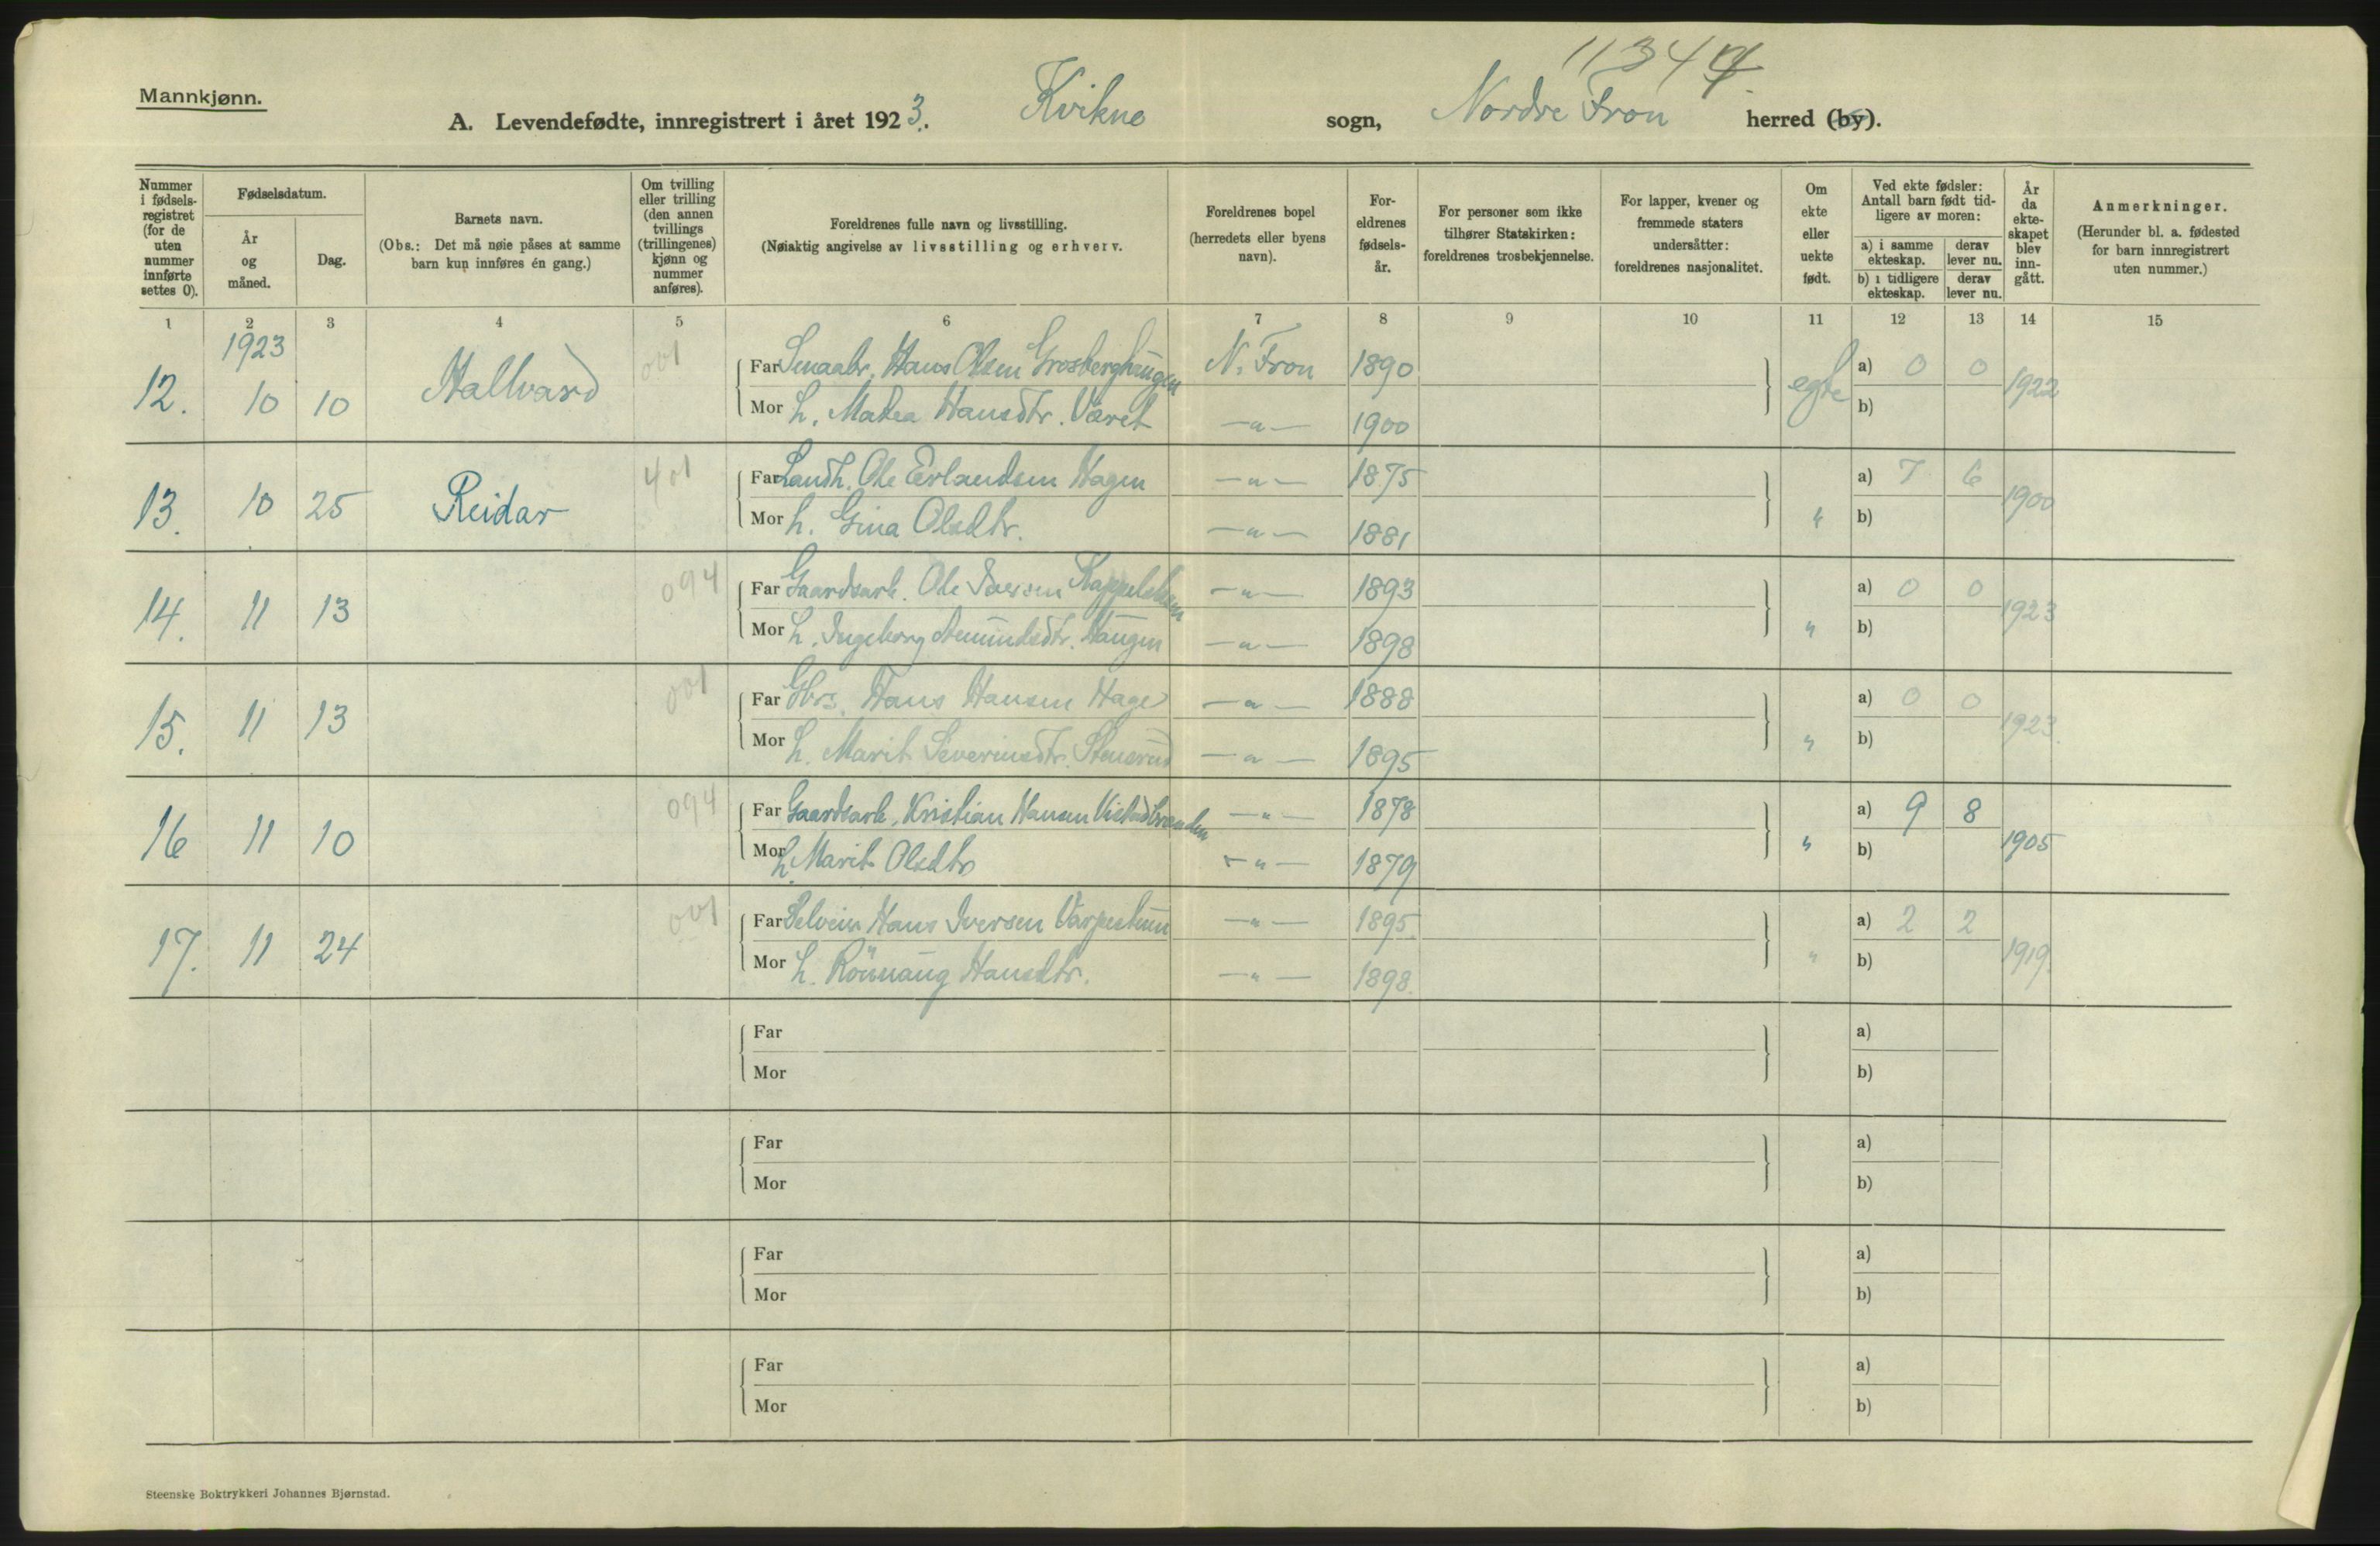 11344
Mannkjønn.
A. Levendefødte, innregistrert i året 1923. Kvikne sogn, Nordre Fron herred (by).
Nummer i fødselsregistret (for de uten nummer innførte settes 0).
Fødselsdatum.
År og måned.
Dag.
Barnets navn.
(Obs.: Det må nøie påses at samme barn kun innføres én gang.)
Om tvilling eller trilling (den annen tvillings (trillingenes) kjønn og nummer anføres).
Foreldrenes fulle navn og livsstilling.
(Nøiaktig angivelse av livsstilling og erhverv.
Foreldrenes bopel (herredets eller byens navn).
Foreldrenes fødselsår.
For personer som ikke tilhører Statskirken: foreldrenes trosbekjennelse.
For lapper, kvener og fremmede staters undersåtter: foreldrenes nasjonalitet.
Om ekte eller uekte født.
Ved ekte fødsler: Antall barn født tidligere av moren:
a) i samme ekteskap. derav lever nu.
b) i tidligere ekteskap. derav lever nu.
År da ekteskapet blev inngått.
Anmerkninger.
(Herunder bl. a. fødested for barn innregistrert uten nummer.)
1 2 3 4 5 6 7 8 9 10 11 12 13 14 15
1923
12. 10 10 Hallvard 001 Far Smaabr. Hans Olsen Grosberghaugen N. Fron 1890 egte a) 0 0 1922
Mor h. Mathea Hansdtr. Været —"— 1900 b)
13. 10 25 Reidar 401 Far Landh. Ole Erlandsen Hagen —"— 1875 " a) 7 6 1900
Mor h. Gina Olsdtr. —"— 1881 b)
14. 11 13 094 Far Gaardsarb. Ole Iversen —"— 1893 " a) 0 0 1923
Mor h. Ingeborg Amundsdtr. Haugen —"— 1898 b)
15. 11 13 001 Far Gbr. Hans Hansen Hage —"— 1888 " a) 0 0 1923.
Mor h. Marit Severinsdtr. Stensrud —"— 1895 b)
16 11 10 094 Far Gaardsarb. Kristian Hansen —"— 1878 " a) 9 8 1905
Mor h. Marit Olsdtr —"— 1879 b)
17. 11 24 001 Far Selveier Hans Iversen —"— 1895. " a) 2 2 1919.
Mor h. Rönnaug Hansdtr. —"— 1898. b)
Far a)
Mor b)
Far a)
Mor b)
Far a)
Mor b)
Far a)
Mor b)
Steenske Boktrykkeri Johannes Bjørnstad.